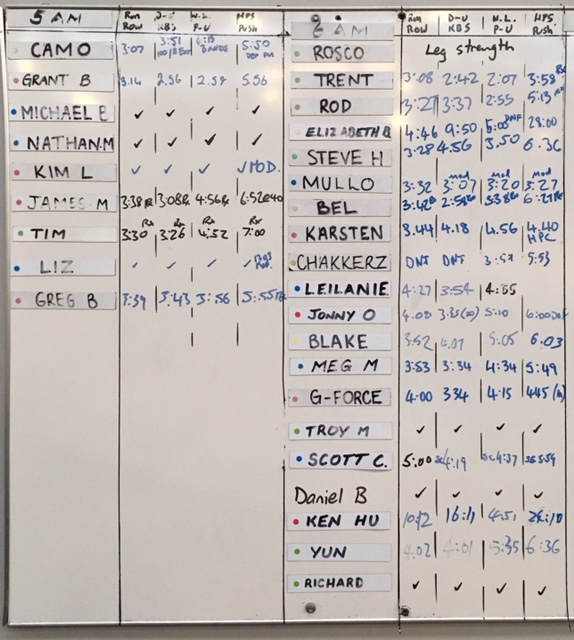 5 AM Run ROW D-U KB'S W.L. P-U HPS Push
CAMO 3:07 3:51 6:13 BANDS 5:50
GRANT B 3.14 2.56 2.59 5.56
MICHAEL B ✓ ✓ ✓ ✓
NATHAN.M ✓ ✓ ✓ ✓
KIM L ✓ ✓ ✓ ✓ MOD.
JAMES M 3:38 Rx 3:08 Rx 4:56 Rx 6:52@40
TIM 3:30 Rx 3:26 Rx 4:52 Rx 7:00 Rx
LIZ ✓ ✓ ✓ ✓
GREG B 3:39 3:43 3:56 5:55
AM Run ROW D-U KB'S W.L. P-U HPS Push
ROSCO Leg strength
TRENT 3:08 2:42 2:07 3:58 Rx
ROD 3:27 3:37 2:55 5:13
ELIZABETH B 4:46 9:50 5:03 DNF 28:00
STEVE H 3:28 4.56 3.50 6.36
MULLO 3:32 3:07 mod 3:20 mod 3:27 mod
BEL 3:42 6:27
KARSTEN 3.44 4.18 4.56 4.40 HPC
CHAKKERZ DNT DNT 5:53
LEILANIE 4:27 3:54 4:55
JONNY O 4.08 5:10 6:00
BLAKE 3:52 4.07 5:05 6.03
MEG M 3:53 3:34 4:34 5:49
G-FORCE 4:00 334 4:15 445
TROY M ✓ ✓ ✓ ✓
SCOTT C. 5:00 sc 4:19 sc 4:37 sc 5:59
Daniel B ✓ ✓ ✓ ✓
KEN HU 10:12 16:11 4:51 26:10
YUN 4.02 4:01 5:35 6:36
RICHARD ✓ ✓ ✓ ✓